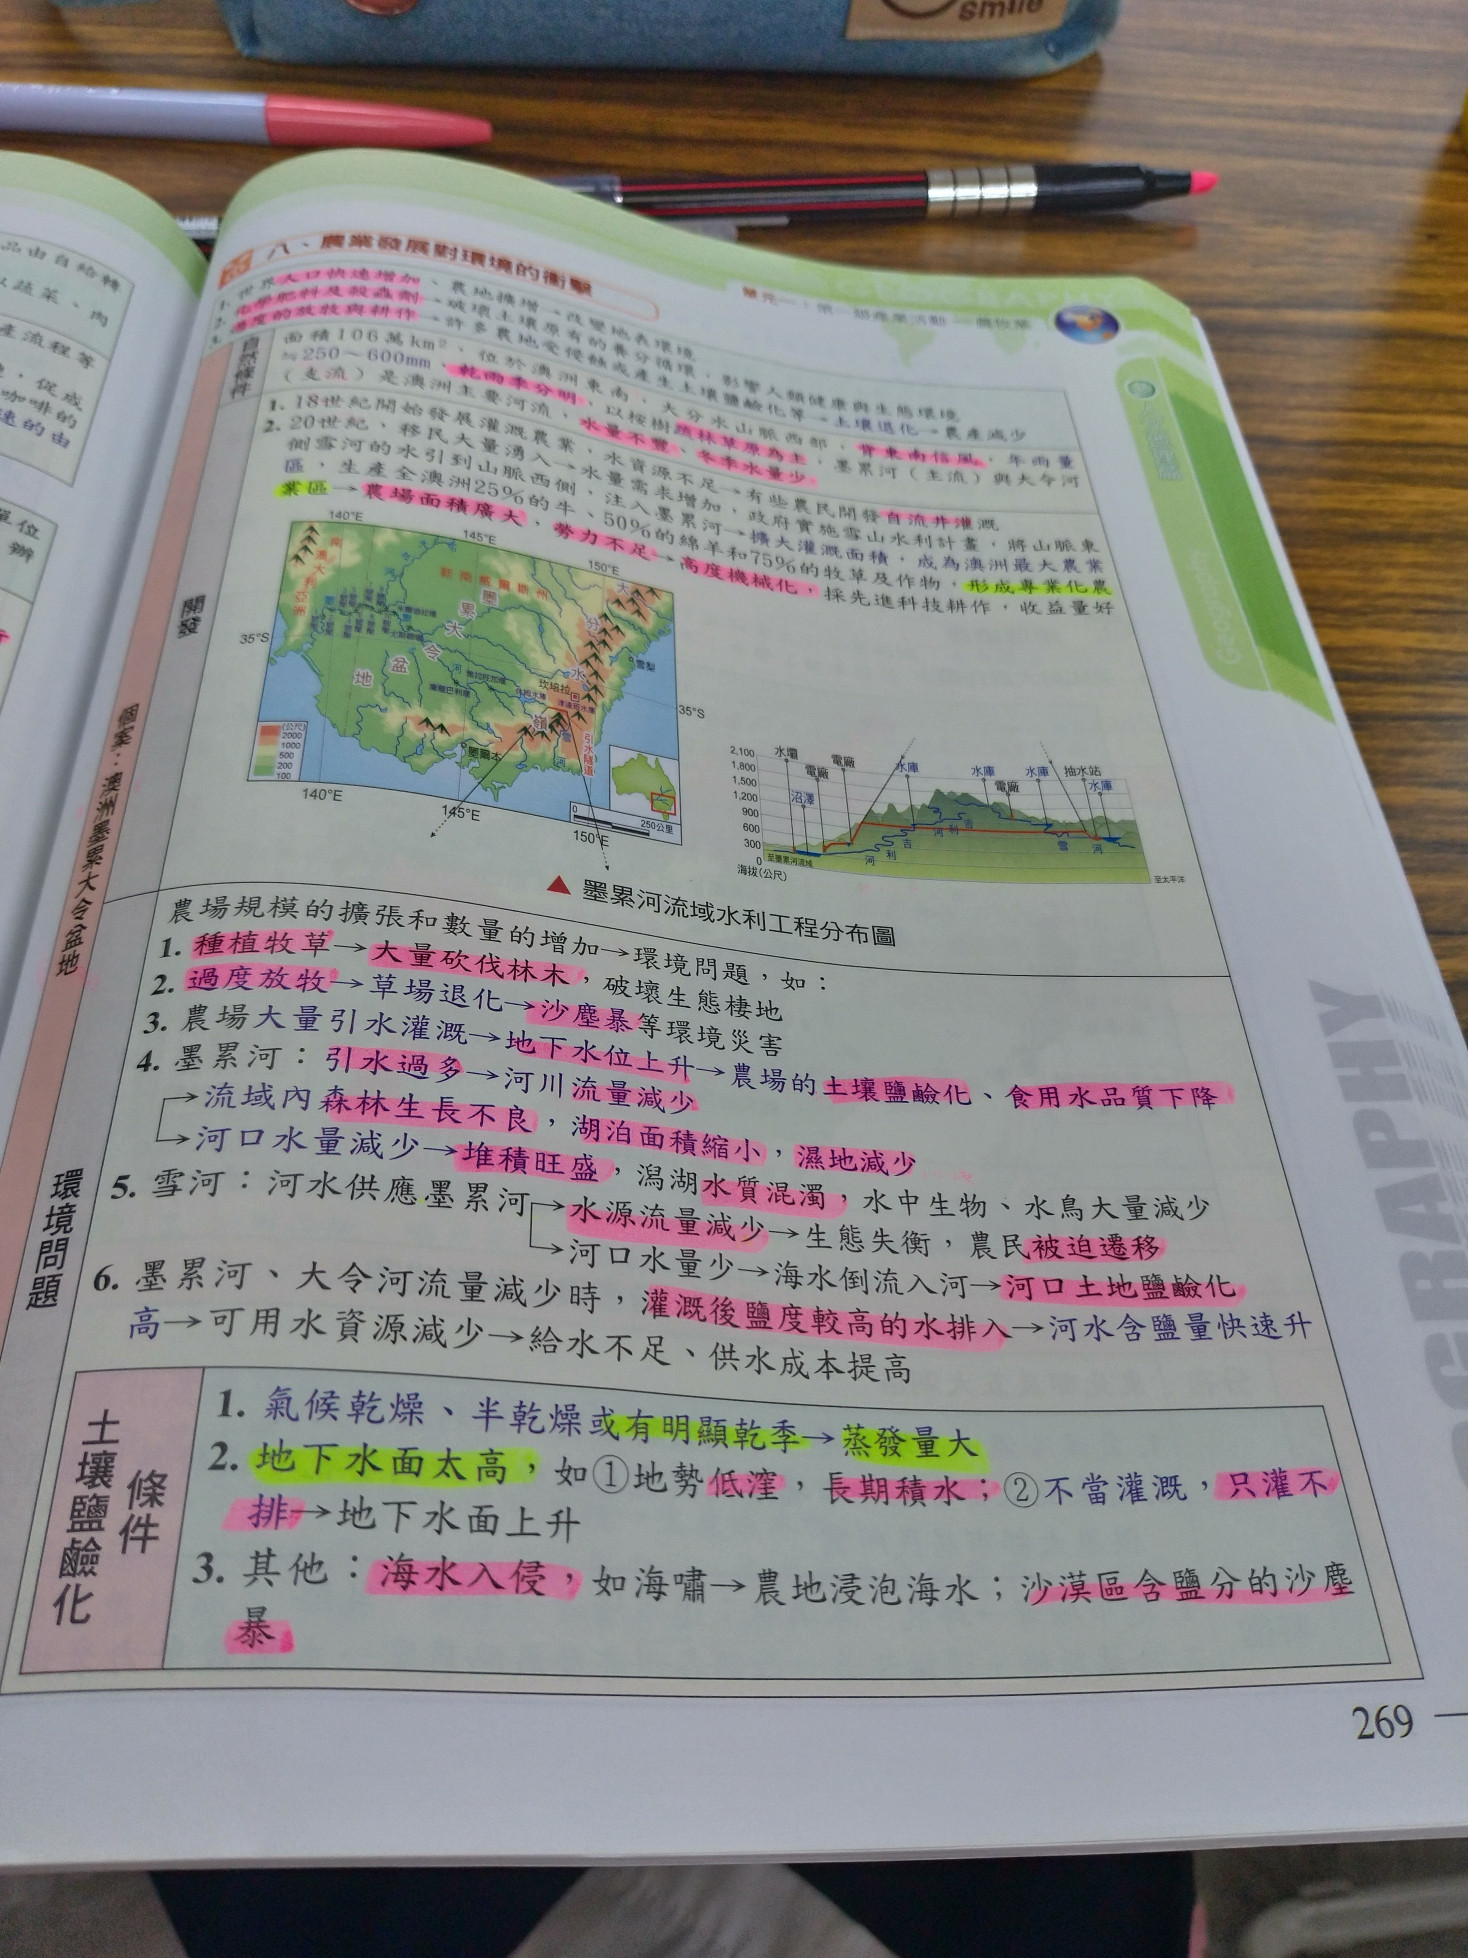 smile
品由自給轉
以蔬菜、肉
產流程等
，促成
咖啡的
速的由
單位
辦
八、農業發展對環境的衝擊
單元一：第一級產業活動—農牧業
1. 世界人口快速增加、農地擴增→改變地表環境
2. 化學肥料及殺蟲劑→破壞土壤原有的養分循環，影響人類健康與生態環境
3. 過度的放牧與耕作→許多農地受侵蝕或產生土壤鹽鹼化等→土壤退化→農產減少
個案：澳洲墨累大令盆地
自然條件
面積106萬km²，位於澳洲東南，大分水山脈西部，背東南信風，年雨量
≒250～600mm，乾雨季分明，以桉樹疏林草原為主，墨累河（主流）與大令河
（支流）是澳洲主要河流，水量不豐、冬季水量少。
開發
1. 18世紀開始發展灌溉農業，水資源不足→有些農民開發自流井灌溉
2. 20世紀、移民大量湧入→水量需求增加，政府實施雪山水利計畫，將山脈東
側雪河的水引到山脈西側，注入墨累河→擴大灌溉面積，成為澳洲最大農業
區，生產全澳洲25%的牛、50%的綿羊和75%的牧草及作物，形成專業化農
業區→農場面積廣大，勞力不足→高度機械化，採先進科技耕作，收益量好
140°E
145°E
150°E
35°S
35°S
南澳大利亞
新南威爾斯州
墨累大令盆地
大分水嶺
雪梨
坎培拉
墨爾本
雪河
引水隧道
(公尺)
2000
1000
500
200
100
0 250公里
140°E
145°E
150°E
2,100
1,800
1,500
1,200
900
600
300
0
海拔(公尺)
水壩
電廠
電廠
沼澤
水庫
水庫
電廠
水庫
抽水站
水庫
河利吉
河利吉
雪河
至墨累河流域
至太平洋
▲ 墨累河流域水利工程分布圖
環境問題
農場規模的擴張和數量的增加→環境問題，如：
1. 種植牧草→大量砍伐林木，破壞生態棲地
2. 過度放牧→草場退化→沙塵暴等環境災害
3. 農場大量引水灌溉→地下水位上升→農場的土壤鹽鹼化、食用水品質下降
4. 墨累河：引水過多→河川流量減少
→流域內森林生長不良，湖泊面積縮小，濕地減少
→河口水量減少→堆積旺盛，潟湖水質混濁，水中生物、水鳥大量減少
5. 雪河：河水供應墨累河→水源流量減少→生態失衡，農民被迫遷移
→河口水量少→海水倒流入河→河口土地鹽鹼化
6. 墨累河、大令河流量減少時，灌溉後鹽度較高的水排入→河水含鹽量快速升
高→可用水資源減少→給水不足、供水成本提高
土壤鹽鹼化
條件
1. 氣候乾燥、半乾燥或有明顯乾季→蒸發量大
2. 地下水面太高，如①地勢低窪，長期積水；②不當灌溉，只灌不
排→地下水面上升
3. 其他：海水入侵，如海嘯→農地浸泡海水；沙漠區含鹽分的沙塵
暴
人文地理篇
Geography
GEOGRAPHY
269